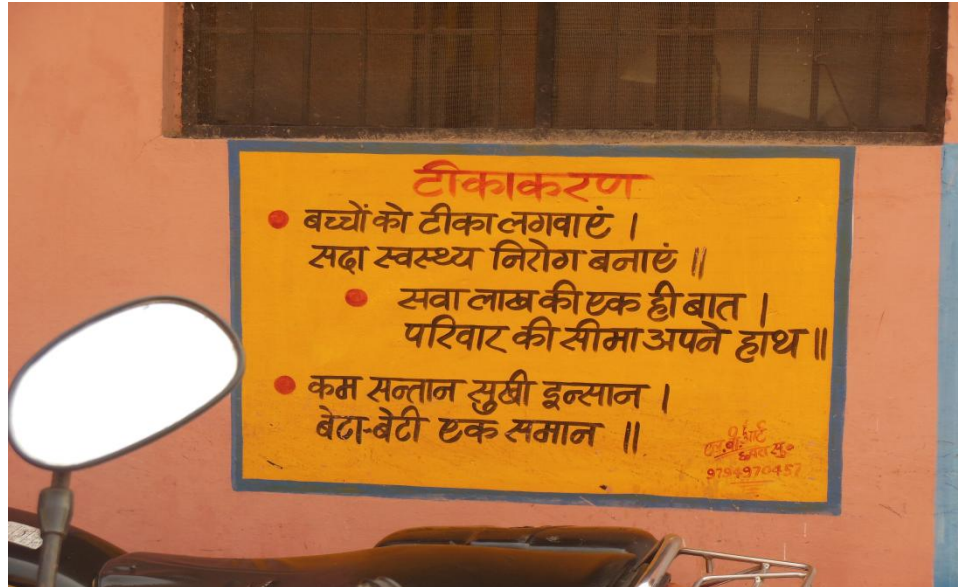 टीकाकरण
बच्चों को टीका लगवाएं ।
सदा स्वस्थ्य निरोग बनाएं ॥
सवा लाख की एक ही बात ।
परिवार की सीमा अपने हाथ ॥
कम सन्तान सुखी इन्सान ।
बेटा-बेटी एक समान ॥
आर्ट
9794970457